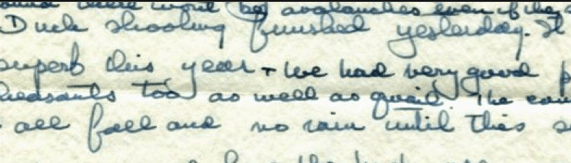 there won't be avalanches even if they
Duck shooting finished yesterday. It
superb this year + we had very good p
heasants too as well as quail. The
all fall and no rain until this